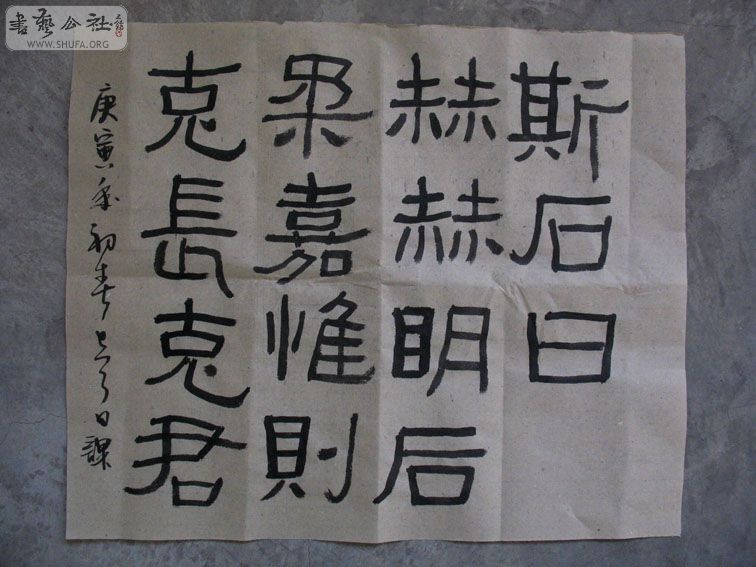 書藝公社
WWW.SHUFA.ORG
斯石曰
赫赫明后
柔嘉惟則
克長克君
庚寅年初春 日課